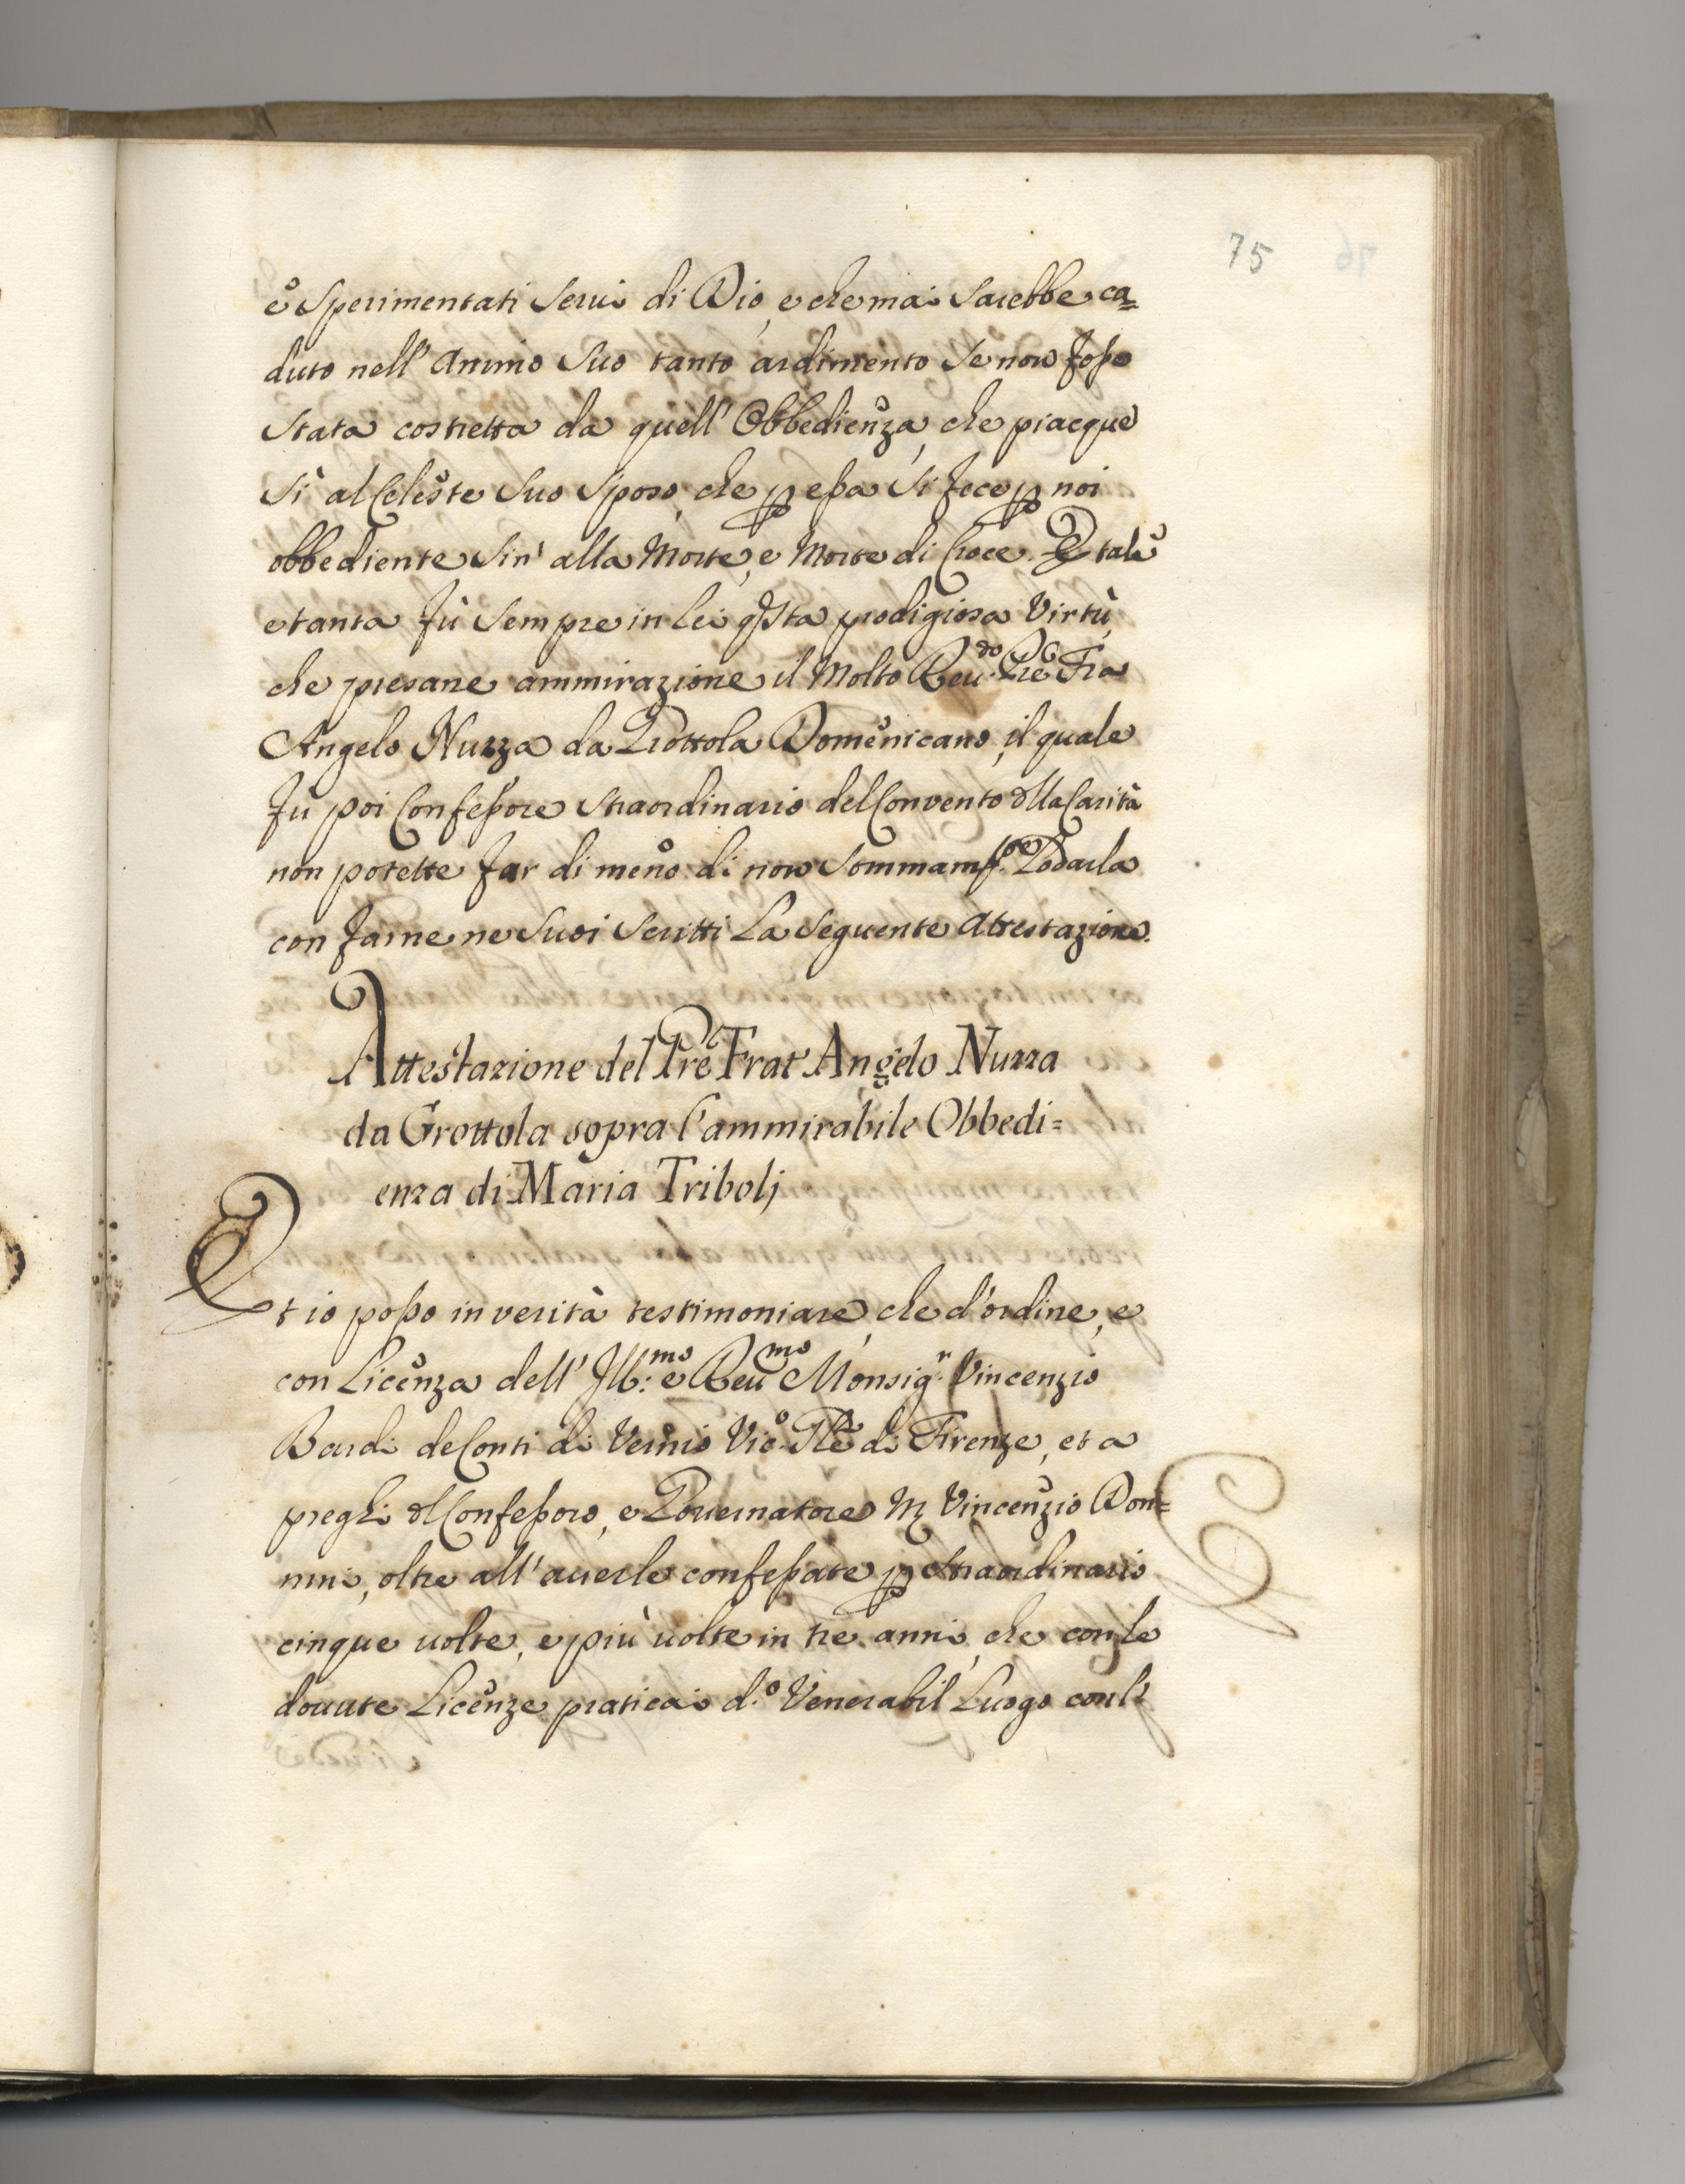 75
e Sperimentati Serui di Dio, e che mai Sarebbe ca=
duto nell' Animo Suo tanto ardimento Se non fosse
Stata costretta da quell' Obbedienza, che piacque
Sì al Celeste Suo Sposo, che p essa Si fece p noi
obbediente Sin' alla Morte, e Morte di Croce. E tale
e tanta fù Sempre in lei qsta prodigiosa Virtù,
che presane ammirazione il Molto Reu.do Pre Fra
Angelo Nuzza da Grottola Domenicano, il quale
fù poi Confessore Straordinario del Convento dlla Carità
non potette far di meno di non Sommam.te Lodarla
con farne ne Suoi Scritti La Seguente Attestazione.
Attestazione del Pre Frat' Angelo Nuzza
da Grottola sopra l'ammirabile Obbedi=
enza di Maria Tribolj
Et io posso in verità testimoniare, che d'ordine, e
con Licenza dell' Ill:mo e Reumo Monsig.r Vincenzio
Bardi de Conti di Vernio Vic.o Gle di Firenze, et a
preghi dl Confessore, e Gouernatore M Vincenzio Don=
nini, oltre all' auerle confessate p Straordinario
cinque uolte, e più uolte in tre anni, che con le
douute Licenze praticai d.o Venerabil' Luogo conl'